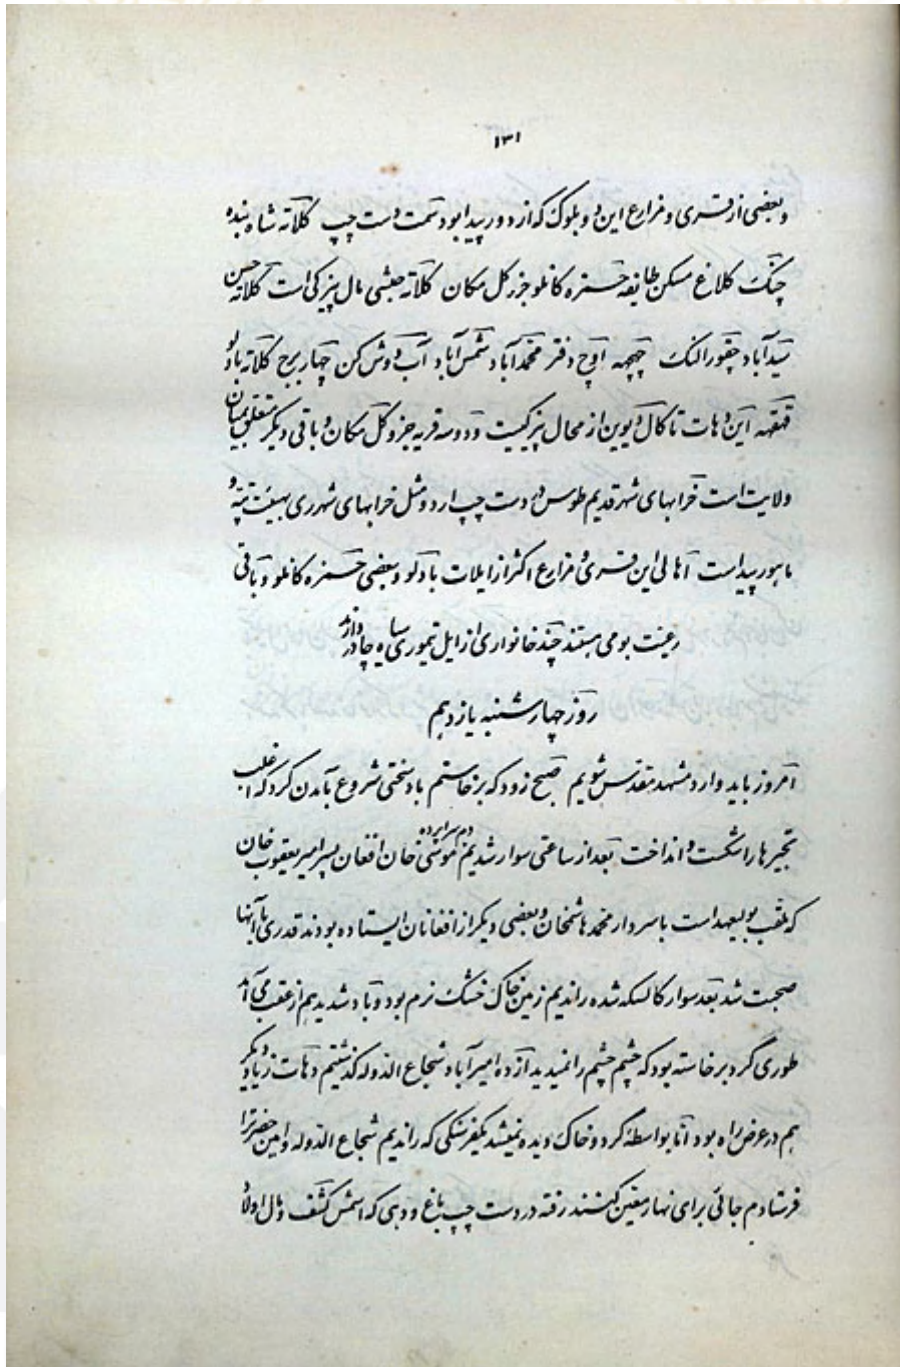 ۱۳۱
و بعضی از قری و مزارع این دو بلوک که از دور پیدا بود سمت دست چپ کلاته شاه بنده
چنک کلاغ مسکن طایفه حمزه کانلو جزو کل مکان کلاته حبشی مال پیزکی است کلاته حسن
سیدآباد چقور النک چهچهه اوچ دفتر محمدآباد شمس آباد آب دوش کن چهار برج کلاته بادلو
قهقهه این دهات تا کال دیوین از محال پیزکیست و دو سه قریه جزو کل مکان و باقی دیگر متعلق بمیان
ولایت است خرابهای شهر قدیم طوس در دست چپ اردو مثل خرابهای شهر ری بهیئت تپه و
ماهور پیداست اهالی این قری و مزارع اکثر از ایلات بادلو و بعضی حمزه کانلو و باقی
رعیت بومی هستند چند خانواری از ایل تیموری سیاه چادر دارند
روز چهارشنبه یازدهم
امروز باید وارد مشهد مقدس شویم صبح زود که برخاستم باد سختی شروع بآمدن کرد که اغلب
تجیرها را شکست و انداخت بعد از ساعتی سوار شدیم دم سراپرده موسی خان افغان پسر امیر یعقوب خان
که ملقب بولیعهد است با سردار محمد هاشمخان و بعضی دیگر از افغانان ایستاده بودند قدری با آنها
صحبت شد بعد سوار کالسکه شده راندیم زمین خاک خشک نرم بود و باد شدید هم از عقب می آمد
طوری گرد برخاسته بود که چشم چشم را نمیدید از ده امیرآباد شجاع الدوله گذشتیم دهات زیاد دیگر
هم در عرض راه بود اما بواسطه گرد و خاک دیده نمیشد یکفرسنگی که راندیم شجاع الدوله و امین حضرت را
فرستادم جائی برای نهار معین کنند رفته در دست چپ باغ و دهی که اسمش کشف و مال اولاد